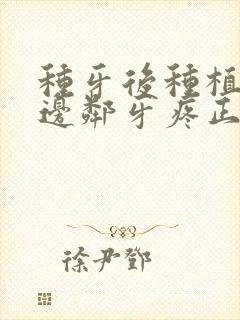 種牙後種植
邊鄰牙疼正
徐尹鄧